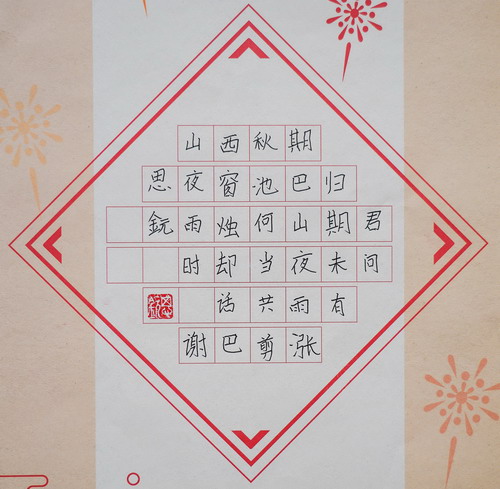 君问
归期未有
期巴山夜雨涨
秋池何当共剪
西窗烛却话巴
山夜雨时谢
思鈗